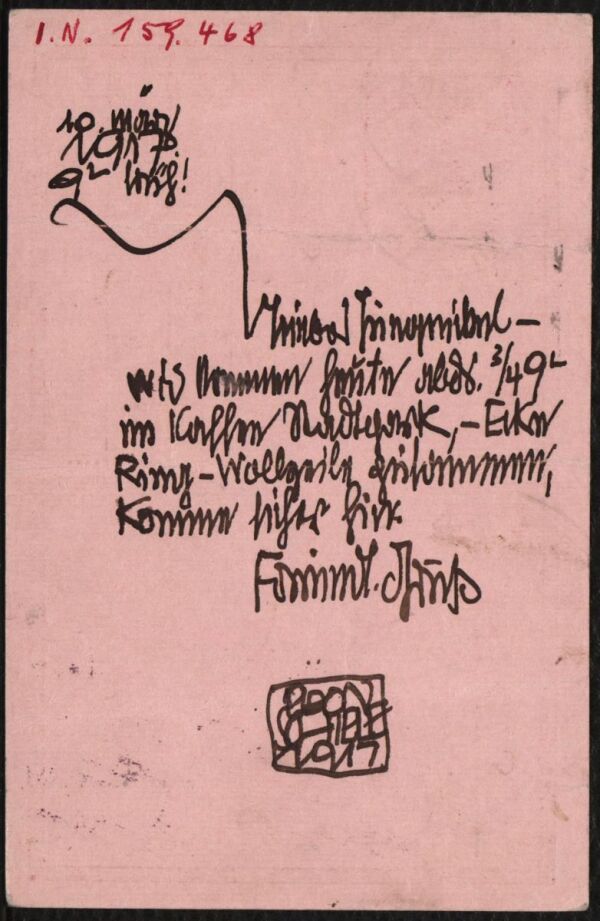 I.N. 159.468
10. März
1917.
9ʰ früh!
Lieber –
wir kommen heute abds. 3/4 9ʰ
im Kaffee Stadtpark, – Ecke
Ring – Wollzeile zusammen,
Komme sicher hin.
Freundl. Gruß
EGON
SCHIELE
1917